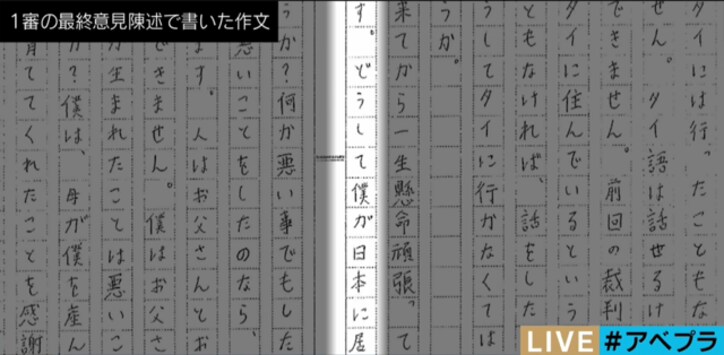 1審の最終意見陳述で書いた作文
タイには行ったこともな
せん。タイ語は話せるけ
できません。前回の裁判
タイに住んでいるという
ともなければ、話をした
うしてタイに行かなくては
うか。
来てから一生懸命頑張って
す。どうして僕が日本に居
うか?何か悪い事でもした
悪いことをしたのなら、
ます。人はお父さんとお
できません。僕はお父さ
が生まれたことは悪いこ
か?僕は、母が僕を産ん
育ててくれたことを感謝
LIVE #アベプラ